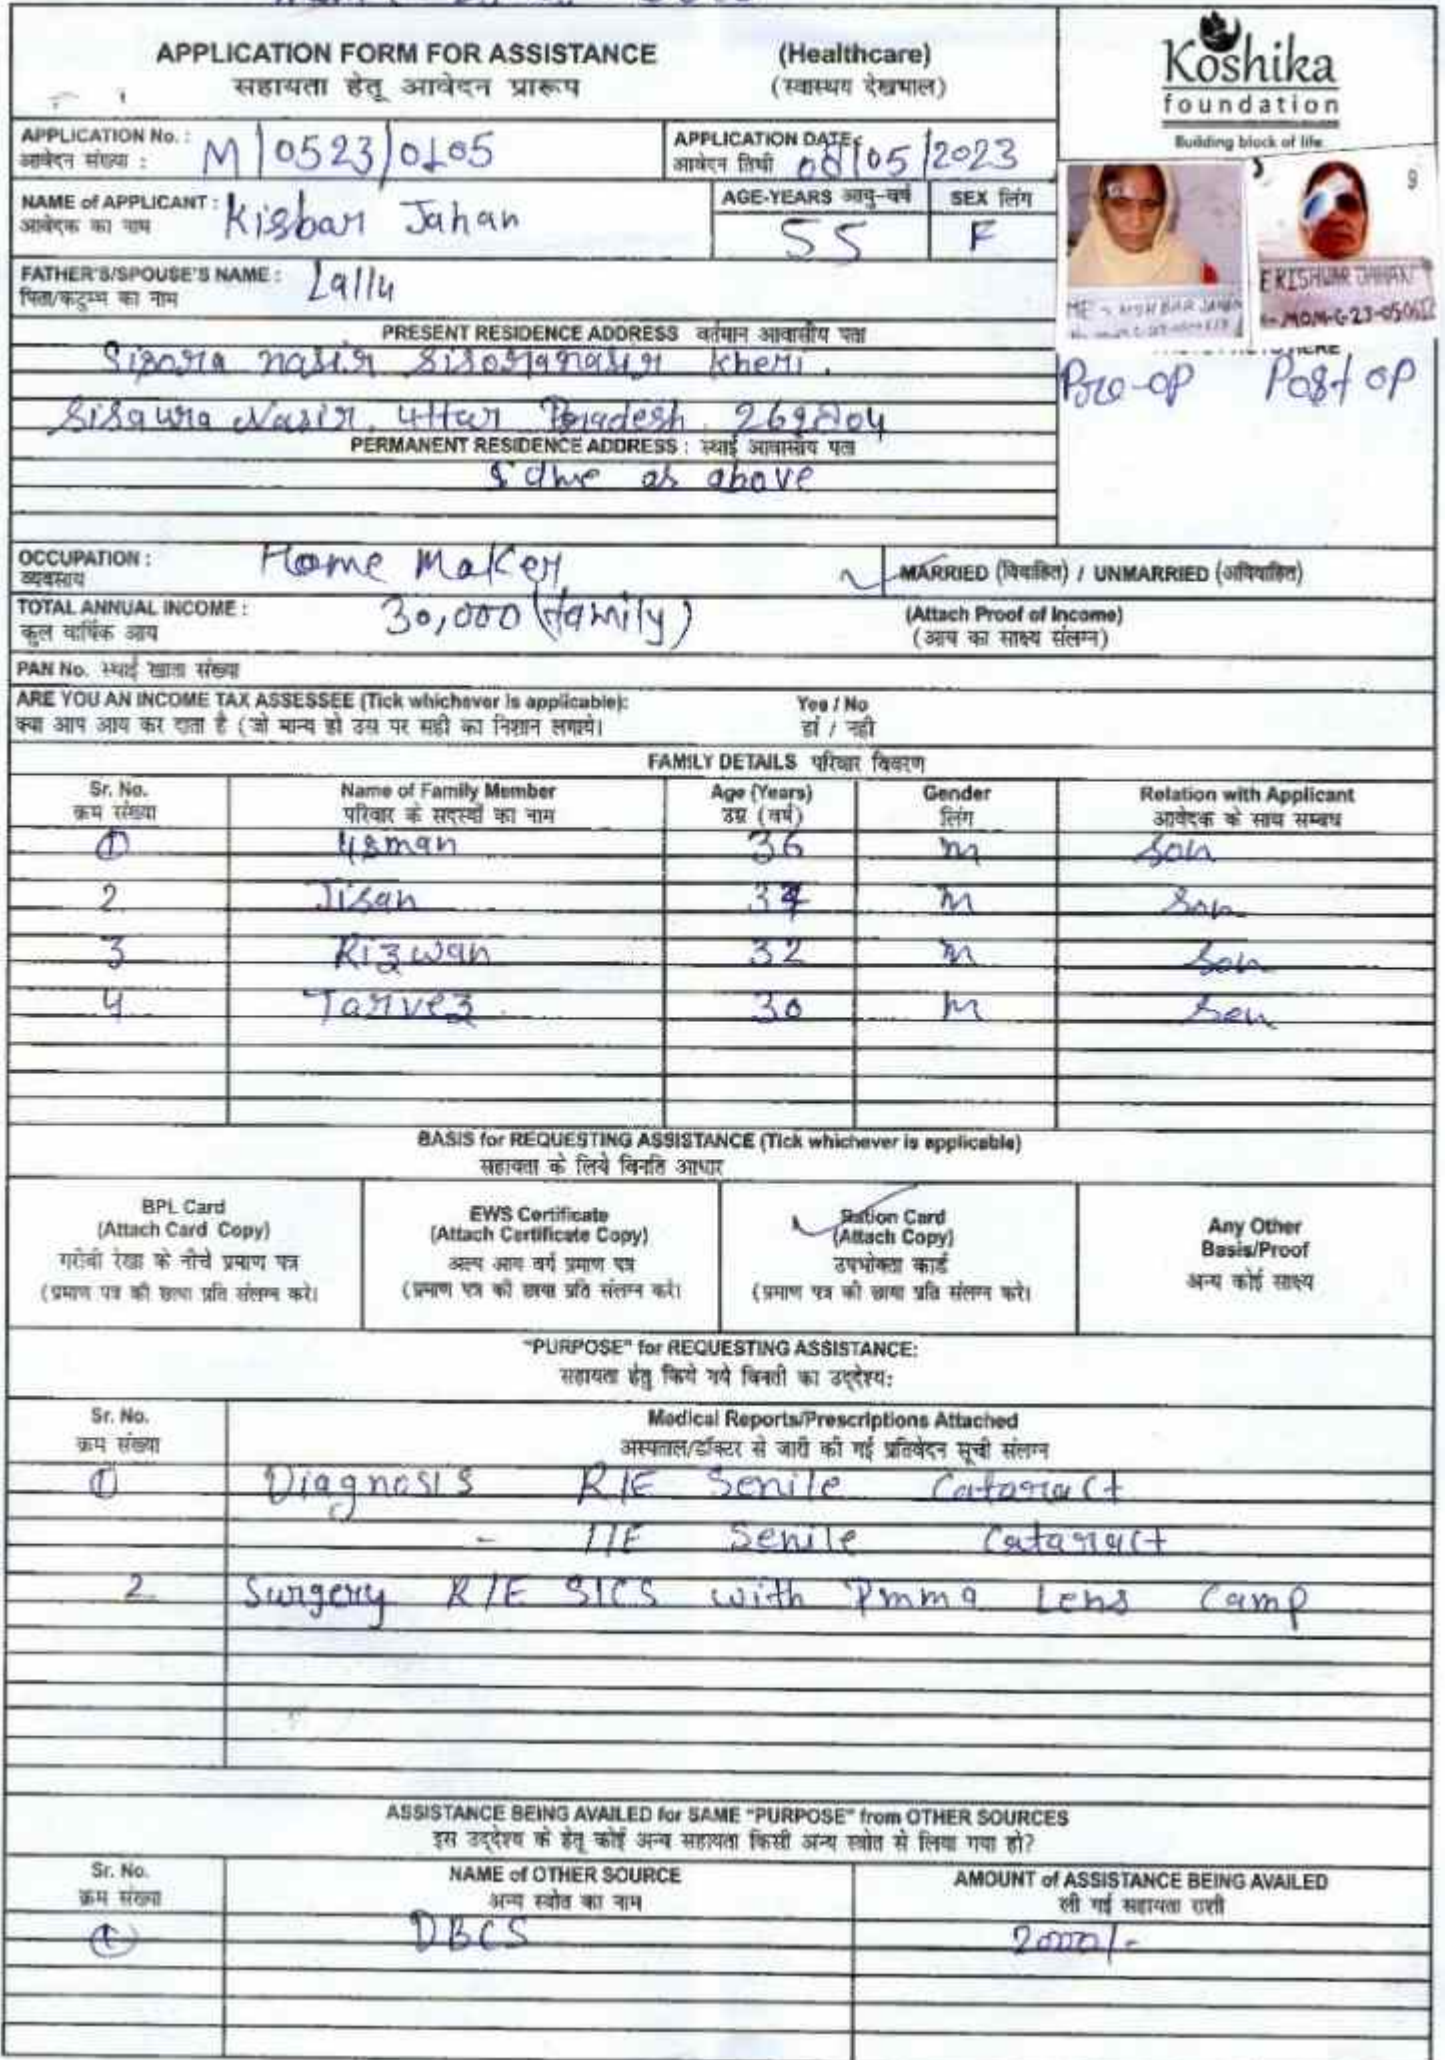 APPLICATION FORM FOR ASSISTANCE (Healthcare)
सहायता हेतू आवेदन प्रारूप (स्वास्थय देखभाल)
Koshika
foundation
Building block of life
APPLICATION No. : M/0523/0105
आवेदन संख्या :
APPLICATION DATE: 08/05/2023
आवेदन तिथी
NAME of APPLICANT : Kisbar Jahan
आवेदक का नाम
AGE-YEARS आयु-वर्ष 55
SEX लिंग F
FATHER'S/SPOUSE'S NAME : Lallu
पिता/कटुम्भ का नाम
PRESENT RESIDENCE ADDRESS वर्तमान आवासीय पता
Sisora nasir Sisoranasir Kheri.
Sisaura Nasir, Uttar Pradesh, 262804
PERMANENT RESIDENCE ADDRESS : स्थाई आवासीय पता
Same as above
Pre-op Post op
OCCUPATION : Home Maker
व्यवसाय
MARRIED (विवाहित) / UNMARRIED (अविवाहित)
TOTAL ANNUAL INCOME : 30,000 (family)
कुल वार्षिक आय
(Attach Proof of Income)
(आय का साक्ष्य संलग्न)
PAN No. स्थाई खाता संख्या
ARE YOU AN INCOME TAX ASSESSEE (Tick whichever is applicable): Yes / No
क्या आप आय कर दाता है (जो मान्य हो उस पर सही का निशान लगाये। हां / नही
FAMILY DETAILS परिवार विवरण
Sr. No. Name of Family Member Age (Years) Gender Relation with Applicant
क्रम संख्या परिवार के सदस्यों का नाम उम्र (वर्ष) लिंग आवेदक के साथ सम्बध
1 Usman 36 M Son
2 Jisan 34 M Son
3 Rizwan 32 M Son
4 Tarvez 30 M Son
BASIS for REQUESTING ASSISTANCE (Tick whichever is applicable)
सहायता के लिये विनति आधार
BPL Card
(Attach Card Copy)
गरीबी रेखा के नीचे प्रमाण पत्र
(प्रमाण पत्र की छाया प्रति संलग्न करे।
EWS Certificate
(Attach Certificate Copy)
अल्प आय वर्ग प्रमाण पत्र
(प्रमाण पत्र की छाया प्रति संलग्न करे।
Ration Card
(Attach Copy)
उपभोक्ता कार्ड
(प्रमाण पत्र की छाया प्रति संलग्न करे।
Any Other
Basis/Proof
अन्य कोई साक्ष्य
"PURPOSE" for REQUESTING ASSISTANCE:
सहायता हेतु किये गये विनती का उद्देश्य:
Sr. No. Medical Reports/Prescriptions Attached
क्रम संख्या अस्पताल/डॉक्टर से जारी की गई प्रतिवेदन सूची संलग्न
1 Diagnosis R/E Senile Cataract
- Senile Cataract
2 Surgery R/E SICS with Pmma Lens Camp
ASSISTANCE BEING AVAILED for SAME "PURPOSE" from OTHER SOURCES
इस उद्देश्य के हेतू कोई अन्य सहायता किसी अन्य स्त्रोत से लिया गया हो?
Sr. No. NAME of OTHER SOURCE AMOUNT of ASSISTANCE BEING AVAILED
क्रम संख्या अन्य स्त्रोत का नाम ली गई सहायता राशी
1 DBCS 2000/-